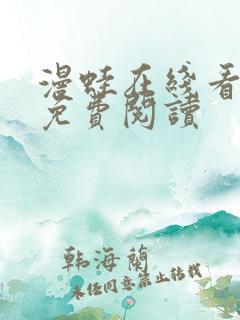 漫蛙在线看
免費閱讀
韩海蘭
未经同意禁止转载